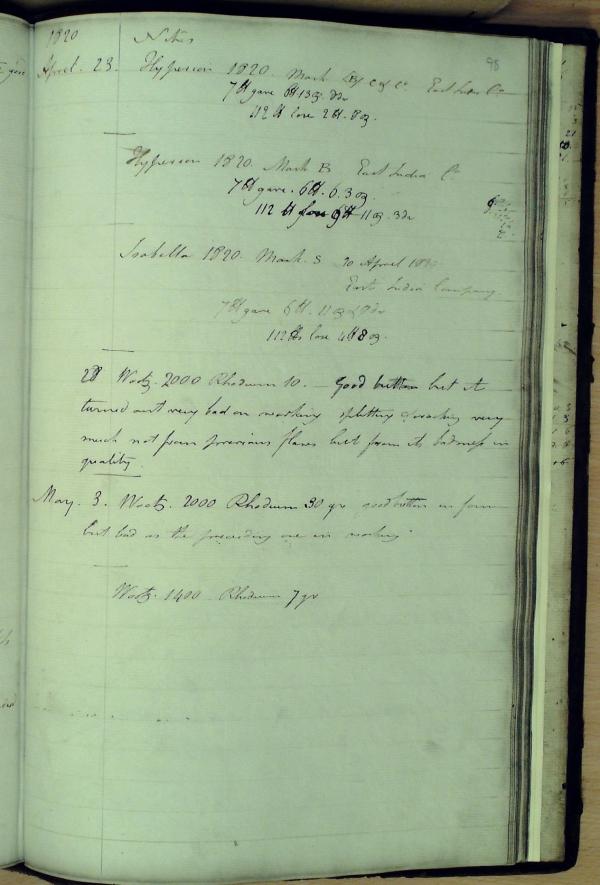 1820 Nitre
98
April. 23. Hyperion 1820. Mark B/ C & Co East India Co
7 lb gave 6 lb 13 oz. 8 dr
112 lb lose 2 lt. 8 oz.
Hyperion 1820. Mark B East India Co
7 lb gave. 6 lb. 6. 3 oz.
112 lb lose 9 lb 11 oz. 3 dr
Isabella 1820. Mark. S 20 April 1820
East India Company.
7 lb gave 6 lb. 11 oz 8 dr
112 lbs lose 4 lb 8 oz.
28 Wootz. 2000 Rhodium 10. — Good button but it
turned out very bad on working splitting & cracking very
much not from previous flaws but from its badness in
quality.
May. 3. Wootz. 2000 Rhodium 30 gr good button in form
but bad as the preceding one in working
Wootz. 1400 Rhodium 7 gr